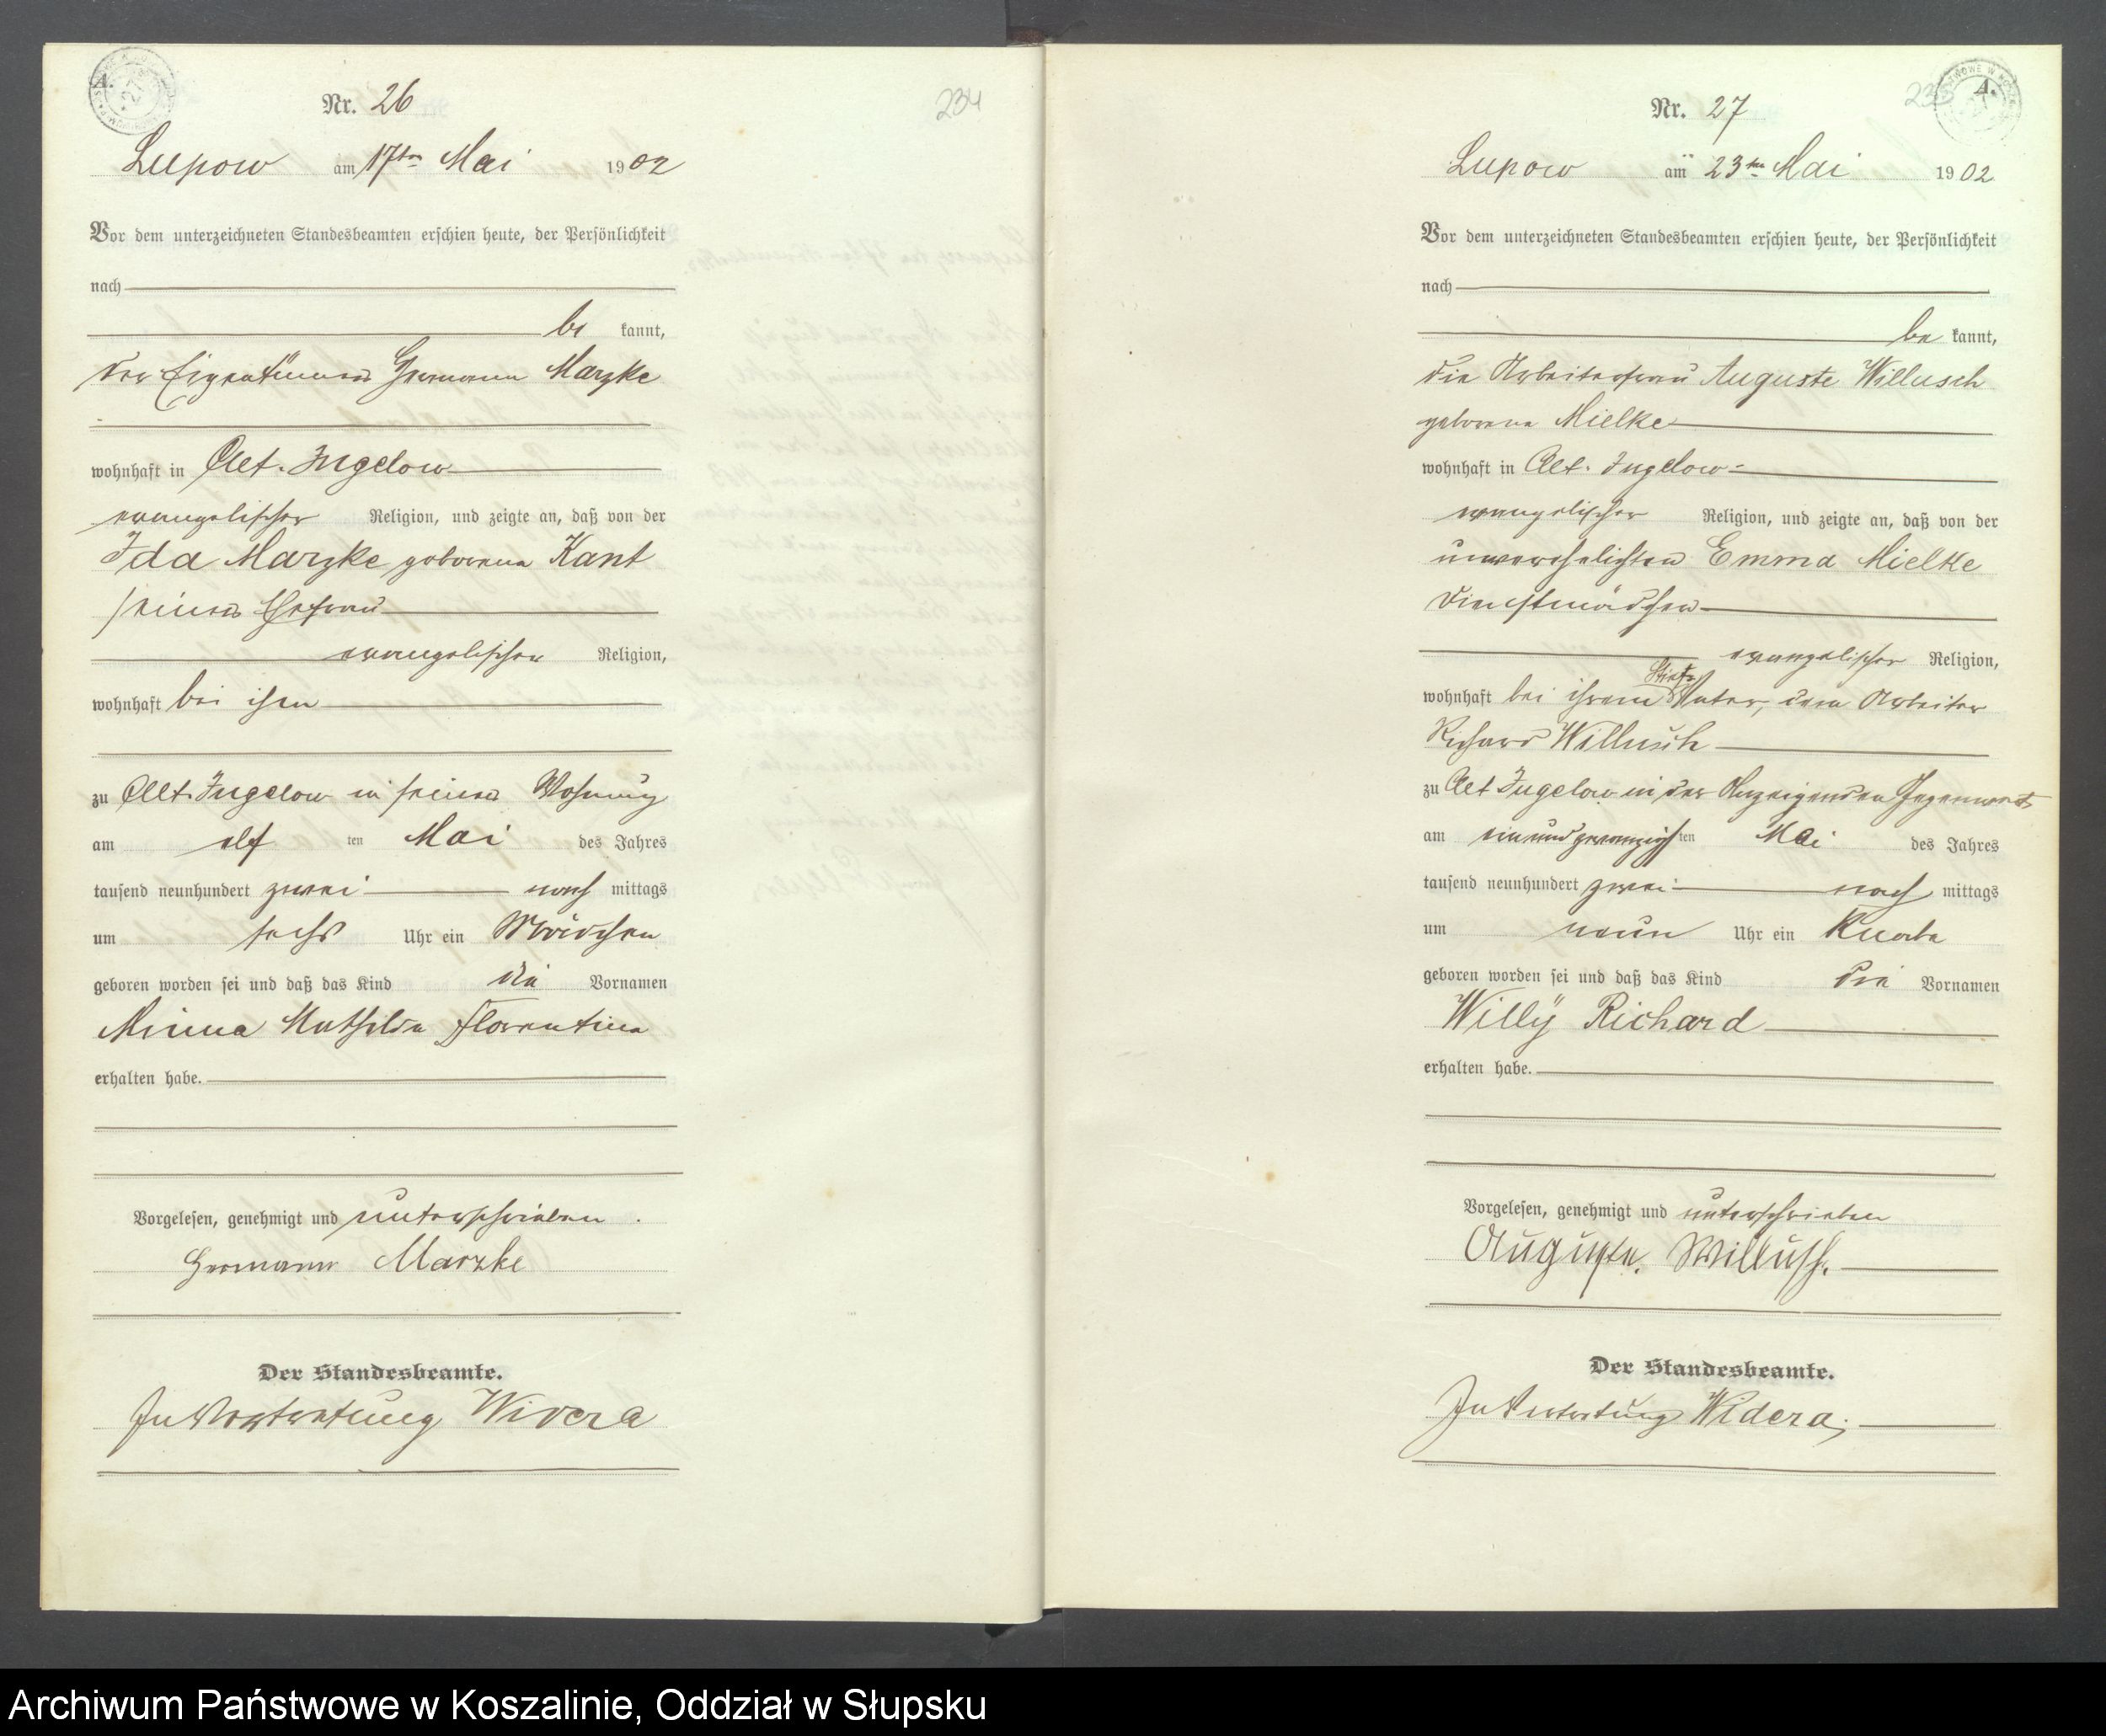 A.
Nr. 26
234
Lupow am 17ten Mai 1902
Vor dem unterzeichneten Standesbeamten erschien heute, der Persönlichkeit
nach
be kannt,
der Eigentümer Hermann Marzke
wohnhaft in Alt-Jugelow
evangelischer Religion, und zeigte an, daß von der
Ida Marzke geborene Kant
seiner Ehefrau
evangelischer Religion,
wohnhaft bei ihm
zu Alt-Jugelow in seiner Wohnung
am elf ten Mai des Jahres
tausend neunhundert zwei nach mittags
um sechs Uhr ein Mädchen
geboren worden sei und daß das Kind die Vornamen
Minna Mathilde Florentine
erhalten habe.
Vorgelesen, genehmigt und unterschrieben.
Hermann Marzke
Der Standesbeamte.
In Vertretung Widera
A.
Nr. 27
Lupow am 23ten Mai 1902
Vor dem unterzeichneten Standesbeamten erschien heute, der Persönlichkeit
nach
be kannt,
die Arbeiterfrau Auguste Willusch
geborene Mielke
wohnhaft in Alt-Jugelow
evangelischer Religion, und zeigte an, daß von der
unverehelichten Emma Mielke
Dienstmädchen
evangelischer Religion,
wohnhaft bei ihrem Stiefvater, dem Arbeiter
Richard Willusch
zu Alt Jugelow in der Anzeigenden Gegenwart
am einundzwanzigsten Mai des Jahres
tausend neunhundert zwei nach mittags
um neun Uhr ein Knabe
geboren worden sei und daß das Kind die Vornamen
Willÿ Richard
erhalten habe.
Vorgelesen, genehmigt und unterschrieben
Auguste. Willusch.
Der Standesbeamte.
In Vertretung Widera.
Archiwum Państwowe w Koszalinie, Oddział w Słupsku